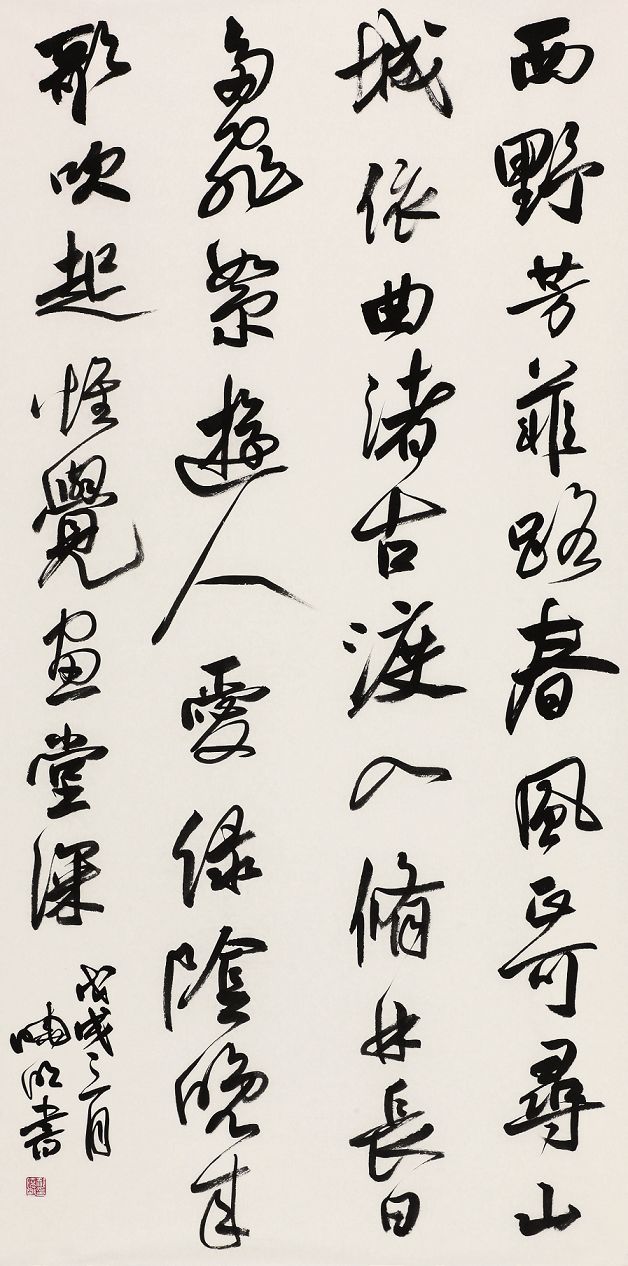 西野芳菲路春風正可尋山
城依曲渚古渡入脩林長日
多飛絮遊人愛緑陰晚來
歌吹起惟覺畫堂深
戊戌三月
明書